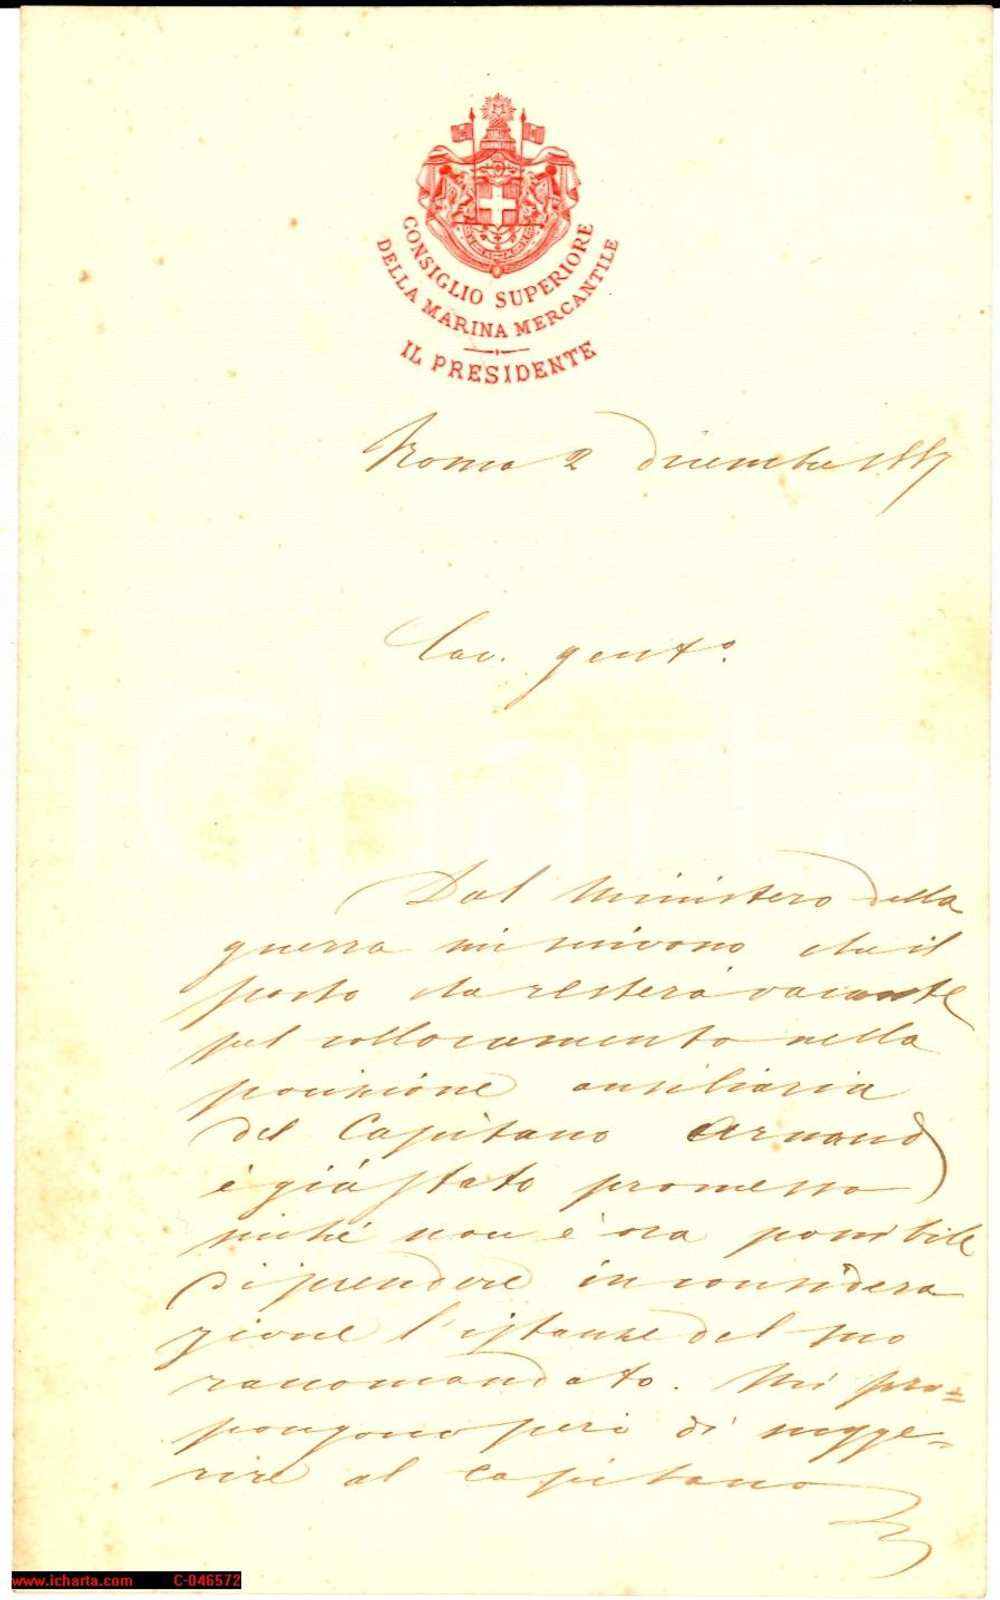 CONSIGLIO SUPERIORE
DELLA MARINA MERCANTILE
IL PRESIDENTE
Roma 2 dicembre 1887
Cav. gent.o
Dal Ministero della
guerra mi scrivono che il
posto che resterà vacante
pel collocamento nella
posizione ausiliaria
del Capitano Arnaud
è già stato promesso
sicché non è ora possibile
di prendere in considera
zione l'istanza del suo
raccomandato. Mi pro=
pongono però di sugge=
rire al capitano
iCharta
www.icharta.com C-046572